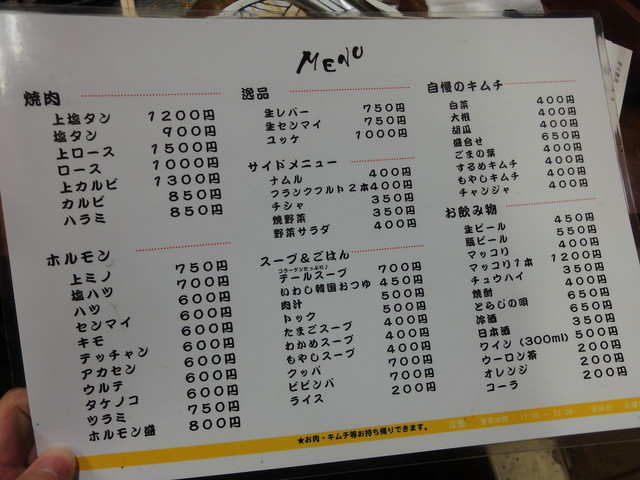 MENU
焼肉
上塩タン 1200円
塩タン 900円
上ロース 1500円
ロース 1000円
上カルビ 1300円
カルビ 850円
ハラミ 850円
ホルモン
上ミノ 750円
塩ハツ 700円
ハツ 600円
センマイ 600円
キモ 600円
テッチャン 600円
アカセン 600円
ウルテ 600円
タケノコ 600円
ツラミ 750円
ホルモン盛 800円
逸品
生レバー 750円
生センマイ 750円
ユッケ 1000円
サイドメニュー
ナムル 400円
フランクフルト2本 400円
チシャ 350円
焼野菜 350円
野菜サラダ 400円
スープ&ごはん
コラーゲンたっぷり♪
テールスープ 700円
いわし韓国おつゆ 450円
肉汁 500円
トック 500円
たまごスープ 400円
わかめスープ 400円
もやしスープ 400円
クッパ 700円
ビビンバ 700円
ライス 200円
自慢のキムチ
白菜 400円
大根 400円
胡瓜 400円
盛合せ 650円
ごまの葉 400円
するめキムチ 400円
もやしキムチ 400円
チャンジャ 400円
お飲み物
生ビール 450円
瓶ビール 550円
マッコリ 400円
マッコリ1本 1200円
チュウハイ 350円
焼酎 400円
とらじの唄 650円
冷酒 650円
日本酒 350円
ワイン(300ml) 500円
ウーロン茶 200円
オレンジ 200円
コーラ 200円
★お肉・キムチ等お持ち帰りできます。